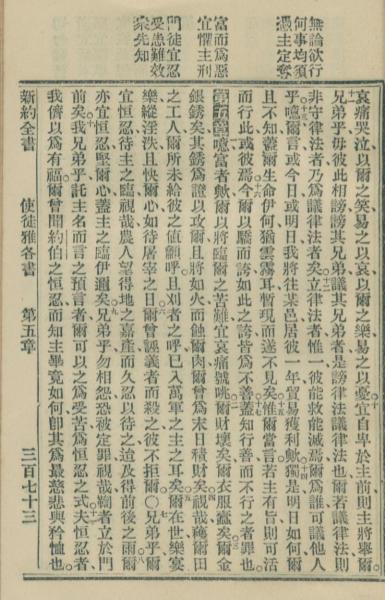 無論欲行
何事均須
憑主定奪
富而為惡
宜懼主刑
門徒宜忍
受患難效
衆先知
哀痛哭泣以爾之笑易之以哀以爾之樂易之以憂宜自卑於主前則主將舉爾
兄弟乎毋彼此相謗謗其兄弟議其兄弟者是謗律法議律法也爾若議律法則
非守律法者乃為議律法者矣立律法者惟一彼能救能滅焉爾為誰可議他人
乎噫爾言或今日或明日我將往某邑居彼一年貿易獲利歟獨是明日如何爾
且不知蓋爾生命伊何猶雲霧耳暫現而遂不見矣惟爾當言若主有旨則可活
而行此或彼焉今爾以驕而誇如此之誇皆為不善蓋知行善而不行之者罪也
第五章噫富者歟爾以將臨爾之苦難宜哀痛號咷爾財壞矣爾衣服蠹矣爾金
銀銹矣其銹為證以攻爾且將如火而蝕爾肉爾曾為末日積財矣視哉穫爾田
之工人爾所未給彼之值籲呼且刈者之呼已入萬軍之主之耳矣爾在世樂宴
樂縱淫泆且快爾心如待屠宰之日爾曾誣義者而殺之彼不拒爾〇兄弟乎爾
宜恒忍待主之臨視哉農人望得地之嘉產而久忍以待之迨及得前後之雨爾
亦宜恒忍堅爾心蓋主之臨伊邇矣兄弟乎勿相怨恐被定罪視哉鞫者立於門
前矣我兄弟乎託主名而言之預言者爾可以之為受苦為恒忍之式夫恒忍者
我儕以為有福爾曾聞約伯之恒忍而知主畢竟如何卽其為最慈悲與矜恤也
新約全書　使徒雅各書　第五章　三百七十三